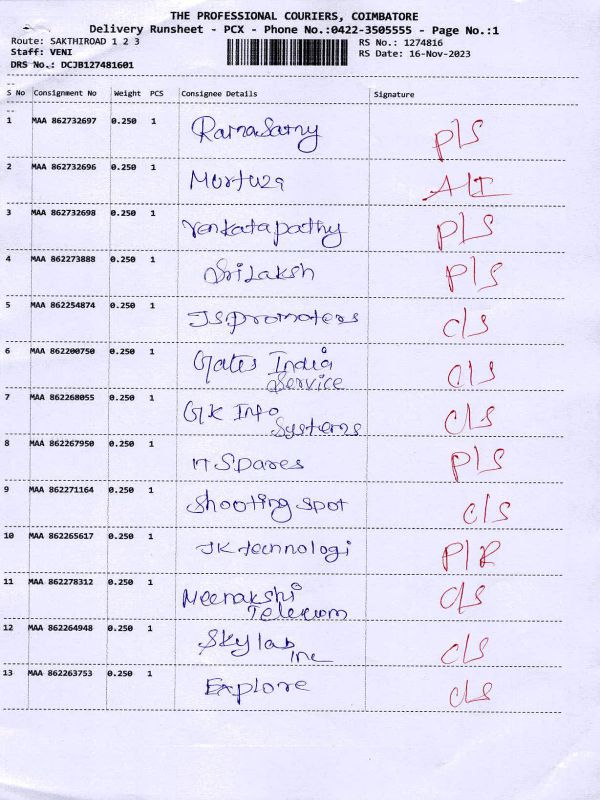 THE PROFESSIONAL COURIERS, COIMBATORE
Delivery Runsheet - PCX - Phone No.:0422-3505555 - Page No.:1
Route: SAKTHIROAD 1 2 3 RS No.: 1274816
Staff: VENI RS Date: 16-Nov-2023
DRS No.: DCJB127481601
S No Consignment No Weight PCS Consignee Details Signature
1 MAA 862732697 0.250 1 RamaSamy P/S
2 MAA 862732696 0.250 1 Murtuza
3 MAA 862732698 0.250 1 Venkatapathy P/S
4 MAA 862273888 0.250 1 SriLaksh P/S
5 MAA 862254874 0.250 1 JSpromoters C/S
6 MAA 862200750 0.250 1 Gates India C/S
Service
7 MAA 862268055 0.250 1 GK Info C/S
Systems
8 MAA 862267950 0.250 1 Spares P/S
9 MAA 862271164 0.250 1 Shooting spot C/S
10 MAA 862265617 0.250 1 JK technologi P/R
11 MAA 862278312 0.250 1 Meenakshi C/S
Telecom
12 MAA 862264948 0.250 1 Skylab C/S
Inc
13 MAA 862263753 0.250 1 Explore C/S